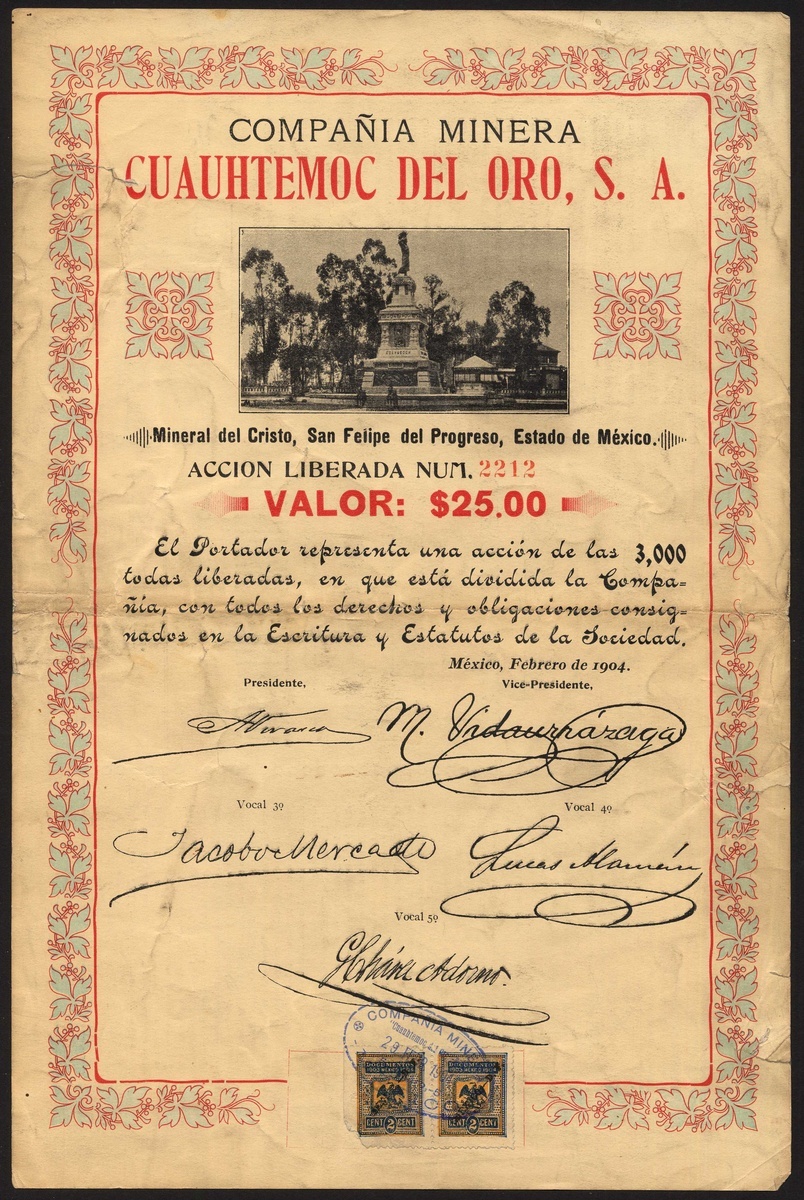 COMPAÑIA MINERA
CUAUHTEMOC DEL ORO, S. A.
Mineral del Cristo, San Felipe del Progreso, Estado de México.
ACCION LIBERADA NUM. 2212
VALOR: $25.00
El Portador representa una acción de las 3,000
todas liberadas, en que está dividida la Compa-
ñía, con todos los derechos y obligaciones consig-
nados en la Escritura y Estatutos de la Sociedad.
México, Febrero de 1904.
Presidente,
Vice-Presidente,
M. Vidaurrázaga
Vocal 3º
Vocal 4º
Jacobo Mercado
Lucas Alamán
Vocal 5º
COMPAÑIA MIN
"Cuauhtemoc
29
DOCUMENTOS
1903 MEXICO 1904
CENT 2 CENT
DOCUMENTOS
1903 MEXICO 1904
CENT 2 CENT